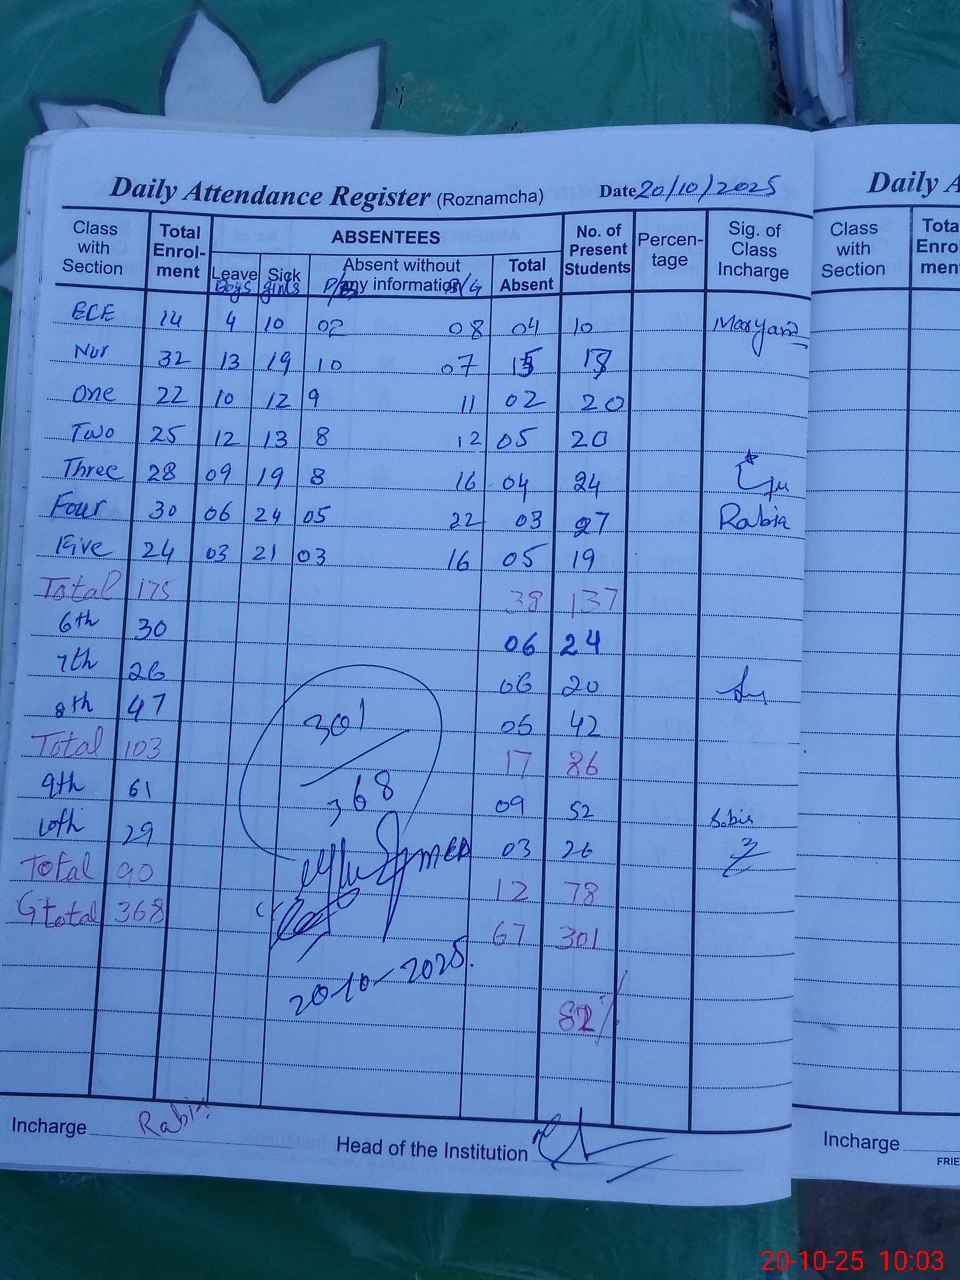 Daily Attendance Register (Roznamcha) Date 20/10/2025
Class with Section Total Enrol-ment ABSENTEES No. of Present Students Percen-tage Sig. of Class Incharge
Leave Sick Absent without any information Total Absent
Boys girls P/B P/G
ECE 14 4 10 02 08 04 10 Maryam
Nur 32 13 19 10 07 15 17
One 22 10 12 9 11 02 20
Two 25 12 13 8 12 05 20
Three 28 09 19 8 16 04 24
Four 30 06 24 05 22 03 27 Rabia
Five 24 03 21 03 16 05 19
Total 175 38 137
6th 30 06 24
7th 26 06 20
8th 47 05 42
Total 103 17 86
9th 61 09 52
10th 29 03 26
Total 90 12 78
Gtotal 368 67 301
301
368
20-10-2025.
82%
Incharge Rabia
Head of the Institution
Daily A
Class with Section Tota Enro men
Incharge
FRIE
20-10-25 10:03